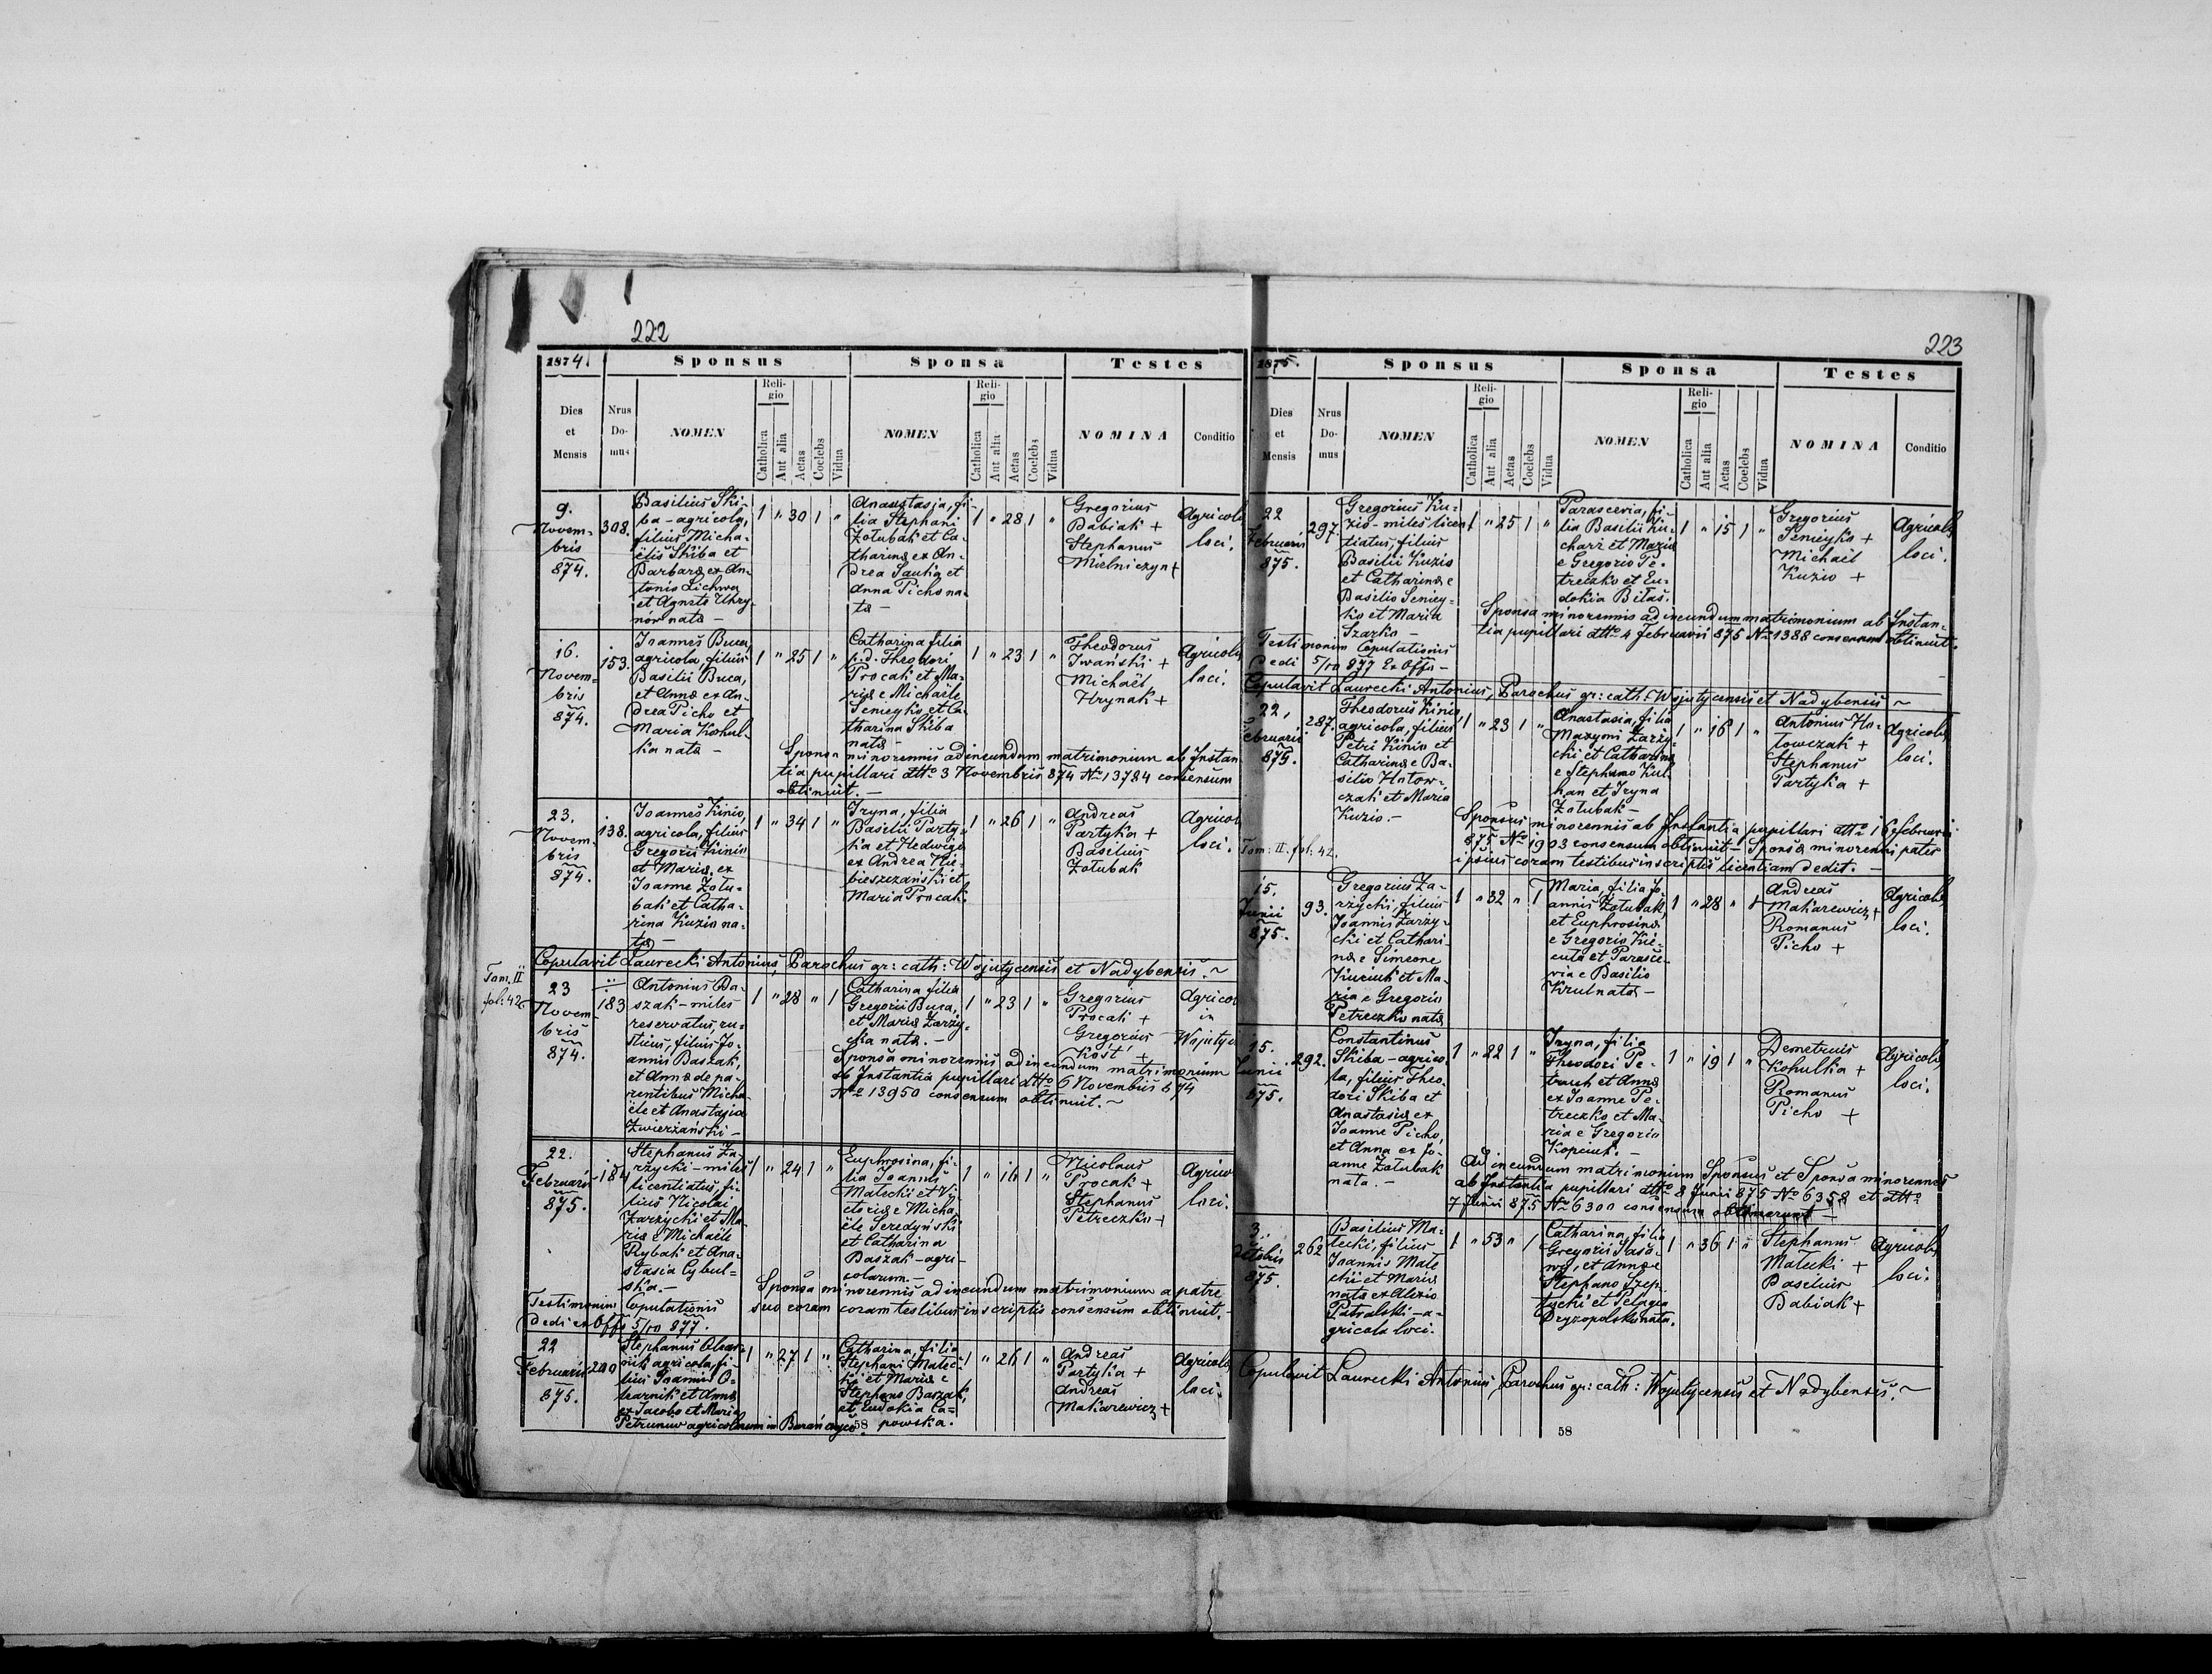 222
1874.
Sponsus
Sponsa
Testes
Dies et Mensis
Nrus Domus
NOMEN
Religio
Catholica
Aut alia
Aetas
Coelebs
Vidua
NOMEN
Religio
Catholica
Aut alia
Aetas
Coelebs
Vidua
NOMINA
Conditio
9.
Novem-
bris
874.
308.
Basilius Ski-
ba - agricola,
filius Micha-
ëlis Skiba et
Barbara ex An-
tonio Lichwa
et Agnete Uhry-
nów nata -
1 " 30 1 "
Anastasia, fi-
lia Stephani
Żołubak et Ca-
tharina ex An-
drea Sauka et
Anna Picho na-
ta -
1 " 28 1 "
Gregorius
Babiak +
Stephanus
Mielniczyn +
Agricola
loci.
16.
Novem-
bris
874.
153.
Joannes Buca,
agricola, filius
Basilii Buca,
et Anna ex An-
drea Picho et
Maria Kohul-
ka nata -
1 " 25 1 "
Catharina filia
p.d. Theodori
Procak et Ma-
ria e Michaële
Senieyko et Ca-
tharina Skiba
nata -
1 " 23 1 "
Theodorus
Iwański +
Michaël
Hrynak +
Agricola
loci.
Sponsa minorennis ad ineundum matrimonium ab Instan
tia pupillari dtto 3 Novembris 874 No 13784 consensum
obtinuit. -
23.
Novem-
bris
874.
138.
Joannes Kinio,
agricola, filius
Gregorii Kinio
et Maria, ex
Joanne Żołu-
bak et Catha-
rina Kuzio na-
ta -
1 " 34 1 "
Iryna, filia
Basilii Party-
ka et Hedwiga
ex Andrea Ku-
bieszczański et
Maria Procak.
1 " 26 1 "
Andreas
Partyka +
Basilius
Żołubak
Agricol
loci.
Copulavit Laurecki Antonius, Parochus gr: cath: Wojutycensis et Nadybensis. ~
Tom. II
fol: 42
23
Novem-
bris
874.
183
Antonius Ba-
szak - miles
reservatus, ru-
sticus, filius Jo-
annis Baszak,
et Anna de pa-
rentibus Micha-
ële et Anastasia
Zwierżański -
1 " 28 " 1
Catharina filia
Gregorii Buca,
et Maria Zarzy-
cka nata. -
1 " 23 1 "
Gregorius
Procak +
Gregorius
Kost +
Agricol
in
Wojutyc
Sponsa minorennis ad ineundum matrimonium
ab Instantia pupillari dtto 6 Novembris 874
No 13950 consensum obtinuit. ~
22.
Februarii
875.
184
Stephanus Za-
rzycki - miles
licentiatus, fi-
lius Nicolai
Zarzycki et Ma-
ria e Michaële
Rybak et Ana-
stasia Cybul-
ska. -
1 " 24 1 "
Euphrosina, fi-
lia Joannis
Małecki et Vi-
ctoria e Micha-
ële Seredyński
et Catharina
Baszak - agri-
colarum. -
1 " 16 1 "
Nicolaus
Procak +
Stephanus
Petreczko +
Agrico
loci.
Sponsa minorennis ad ineundum matrimonium a patre
suo coram coram testibus inscriptis consensum obtinuit. -
Testimonium Copulationis
dedi ex Offo 5/10 877.
22
Februarii
875.
240
Stephanus Olear-
nik agricola, fi-
lius Joannis O-
learnik et Anna
ex Jacobo et Maria
Petruniw agricolarum in Barańczyce.
1 " 27 1 "
Catharina, filia
Stephani Małec-
ki et Maria e
Stephano Baszak,
et Eudokia Ca-
powska.
1 " 26 1 "
Andreas
Partyka +
Andreas
Makarewicz +
Agricola
loci.
58
223
1875.
Sponsus
Sponsa
Testes
Dies et Mensis
Nrus Domus
NOMEN
Religio
Catholica
Aut alia
Aetas
Coelebs
Vidua
NOMEN
Religio
Catholica
Aut alia
Aetas
Coelebs
Vidua
NOMINA
Conditio
22
Februarii
875.
297.
Gregorius Ku-
zio - miles licen-
tiatus, filius
Basilii Kuzio
et Catharina e
Basilio Seniey-
ko et Maria
Szarko -
1 " 25 1 "
Parascevia, fi-
lia Basilii Ku-
charz et Maria
e Gregorio Pe-
treczko et Eu-
dokia Biłas.
1 " 15 1 "
Gregorius
Senieyko +
Michaël
Kuzio +
Agricola
loci.
Sponsa minorennis ad ineundum matrimonium ab Instan-
tia pupillari dtto 4 Februarii 875 No 1388 consensum obtinuit.
Testimonium Copulationis
dedi 5/10 877 Ex Offo -
Copulavit Laurecki Antonius, Parochus gr: cath: Wojutycensis et Nadybensis ~
22,
Februarii
875.
287.
Theodorus Kinio
agricola, filius
Petri Kinio et
Catharina e Ba-
silio Hołow-
czak et Maria
Kuzio. -
1 " 23 1 "
Anastasia, filia
Maxymi Zarzy-
cki et Catharina
e Stephano Kul-
han et Iryna
Żołubak -
1 " 16 1 "
Antonius Ho-
łowczak +
Stephanus
Partyka +
Agricola
loci.
Tom: II. fol: 42.
Sponsus minorennis ab Instantia pupillari dtto 16 februarii
875 No 1903 consensum obtinuit - Sponsa minorenni pater
ipsius coram testibus inscriptis licentiam dedit. -
15.
Junii
875.
93.
Gregorius Za-
rzycki, filius
Joannis Zarzy-
cki et Cathari-
na e Simeone
Kuciuk et Ma-
ria e Gregorio
Petreczko nata
1 " 32 " 1
Maria, filia Jo-
annis Żołubak,
et Euphrosina
e Gregorio Kie-
cuła et Parasce-
via e Basilio
Krul nata -
1 " 28 " 1
Andreas
Makarewicz +
Romanus
Picho +
Agricola
loci.
15.
Junii
875.
292.
Constantinus
Skiba - agrico-
la, filius Theo-
dori Skiba et
Anastasia ex
Joanne Picho,
et Anna ex Jo-
anne Żołubak
nata. -
1 " 22 1 "
Iryna, filia
Theodori Pe-
truch et Anna
ex Joanne Pe-
treczko et Ma-
ria e Gregorio
Kopciuk. -
1 " 19 1 "
Demetrius
Kohulka +
Romanus
Picho +
Agricola
loci.
Ad ineundum matrimonium Sponsus et Sponsa minorennes
ab Instantia pupillari dtto 8 Junii 875 No 6358 et dtto
7 Junii 875 No 6300 consensum obtinuerunt -
3.
Octobris
875.
262
Basilius Ma-
łecki, filius
Joannis Małe
cki et Maria
nata ex Alexio
Patralski - a-
gricola loci.
1 " 53 " 1
Catharina, filia
Gregorii Sasa-
, et Anna e
Stephano Szep-
tycki et Pelagia
Dryzopolska nata.
1 " 36 1 "
Stephanus
Małecki +
Basilius
Babiak +
Agricola
loci.
Copulavit Laurecki Antonius Parochus gr: cath: Wojutycensis et Nadybensis. ~
58